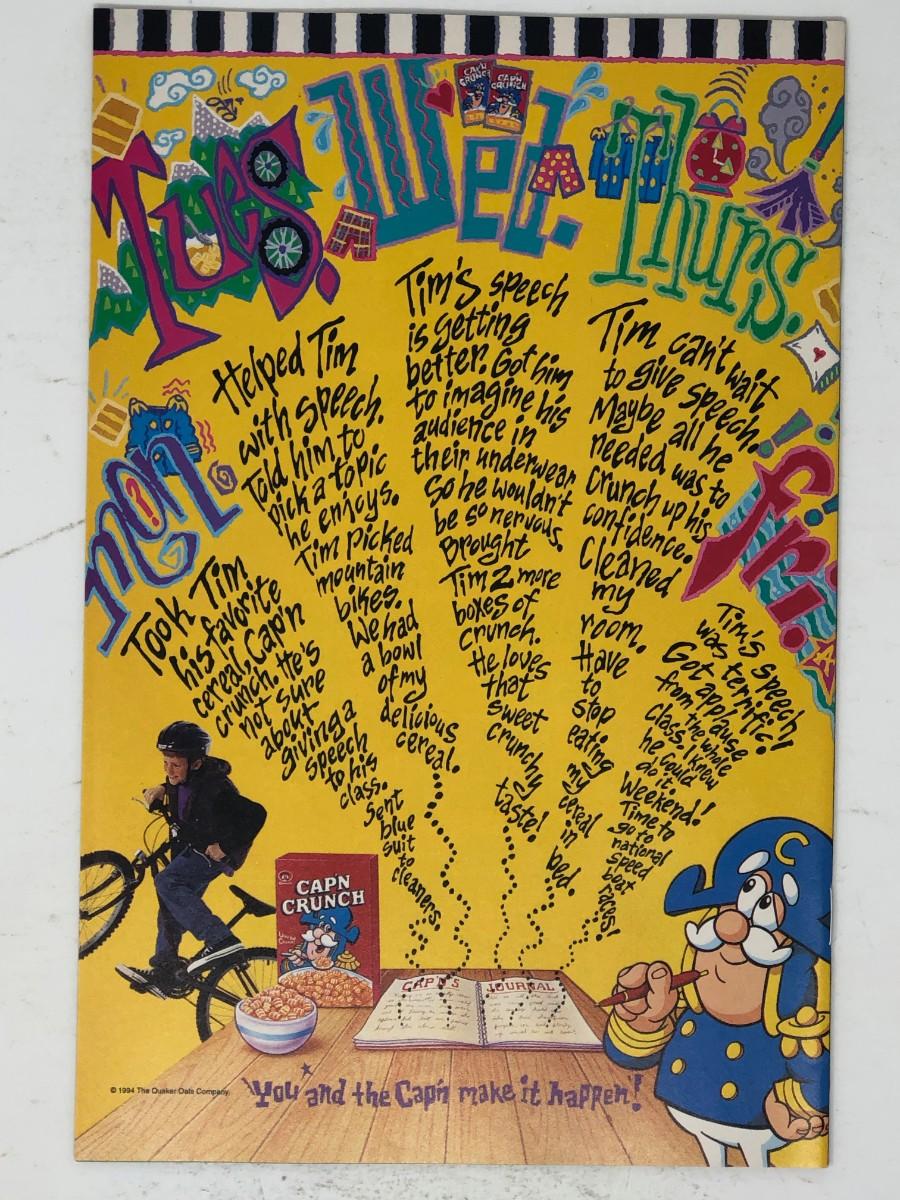 Mon.
Took Tim
his favorite
cereal, Cap'n
Crunch. He's
not sure
about
giving a
speech
to his
class.
Sent
blue
suit
to
cleaners.
Tues.
Helped Tim
with speech.
Told him to
pick a topic
he enjoys.
Tim picked
mountain
bikes.
We had
a bowl
of my
delicious
cereal.
Wed.
CAP'N
CRUNCH
CAP'N
CRUNCH
Tim's speech
is getting
better. Got him
to imagine his
audience in
their underwear
so he wouldn't
be so nervous.
Brought
Tim 2 more
boxes of
crunch.
He loves
that
sweet
crunchy
taste!
Thurs.
Tim can't wait
to give speech.
Maybe all he
needed was to
crunch up his
confidence.
Cleaned
my
room.
Have
to
stop
eating
my
cereal
in
bed.
Fri.
Tim's speech
was terrific!
Got applause
from the whole
class. I knew
he could
do it.
Weekend!
Time to
go to
national
speed
boat
races!
CAP'N
CRUNCH
CAP'N'S JOURNAL
C
© 1994 The Quaker Oats Company.
You and the Cap'n make it happen!